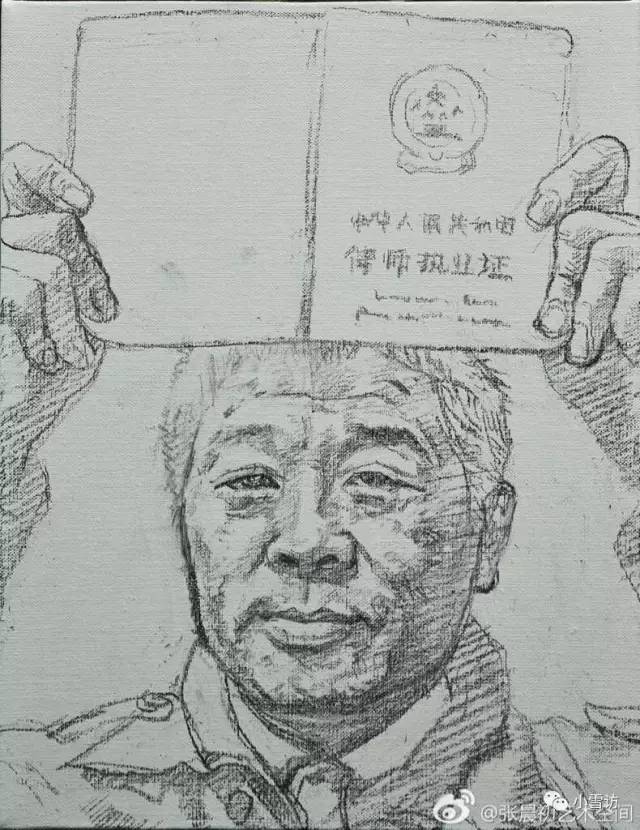 中华人民共和国
律师执业证
小雪访
@张晨初艺术空间